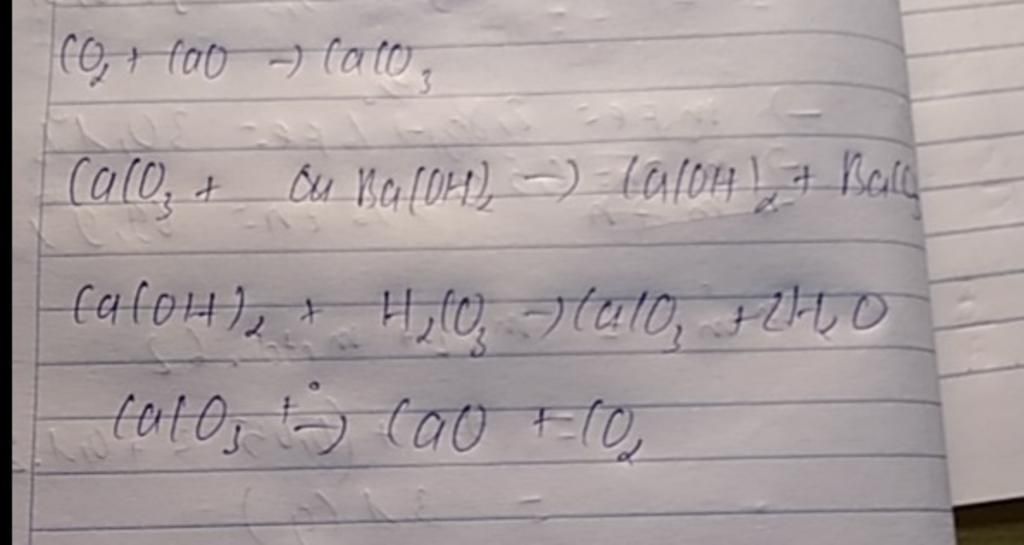 CO2 + CaO → CaCO3
CaCO3 + Ba(OH)2 → Ca(OH)2 + BaCO3
Ca(OH)2 + H2CO3 → CaCO3 + 2H2O
CaCO3 t° → CaO + CO2